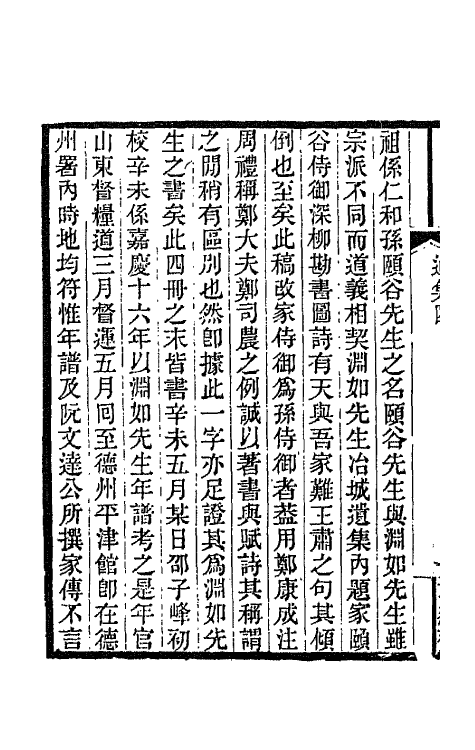 祖係仁和孫頤谷先生之名頤谷先生與淵如先生雖
宗派不同而道義相契淵如先生冶城遺集內題家頤
谷侍御深柳勘書圖詩有天與吾家難王肅之句其傾
倒也至矣此稿改家侍御爲孫侍御者葢用鄭康成注
周禮稱鄭大夫鄭司農之例誠以著書與賦詩其稱謂
之閒稍有區別也然卽據此一字亦足證其爲淵如先
生之書矣此四冊之末皆書辛未五月某日邵子峰初
校辛未係嘉慶十六年以淵如先生年譜考之是年官
山東督糧道三月督運五月囘至德州平津館卽在德
州署內時地均符惟年譜及阮文達公所撰家傳不言